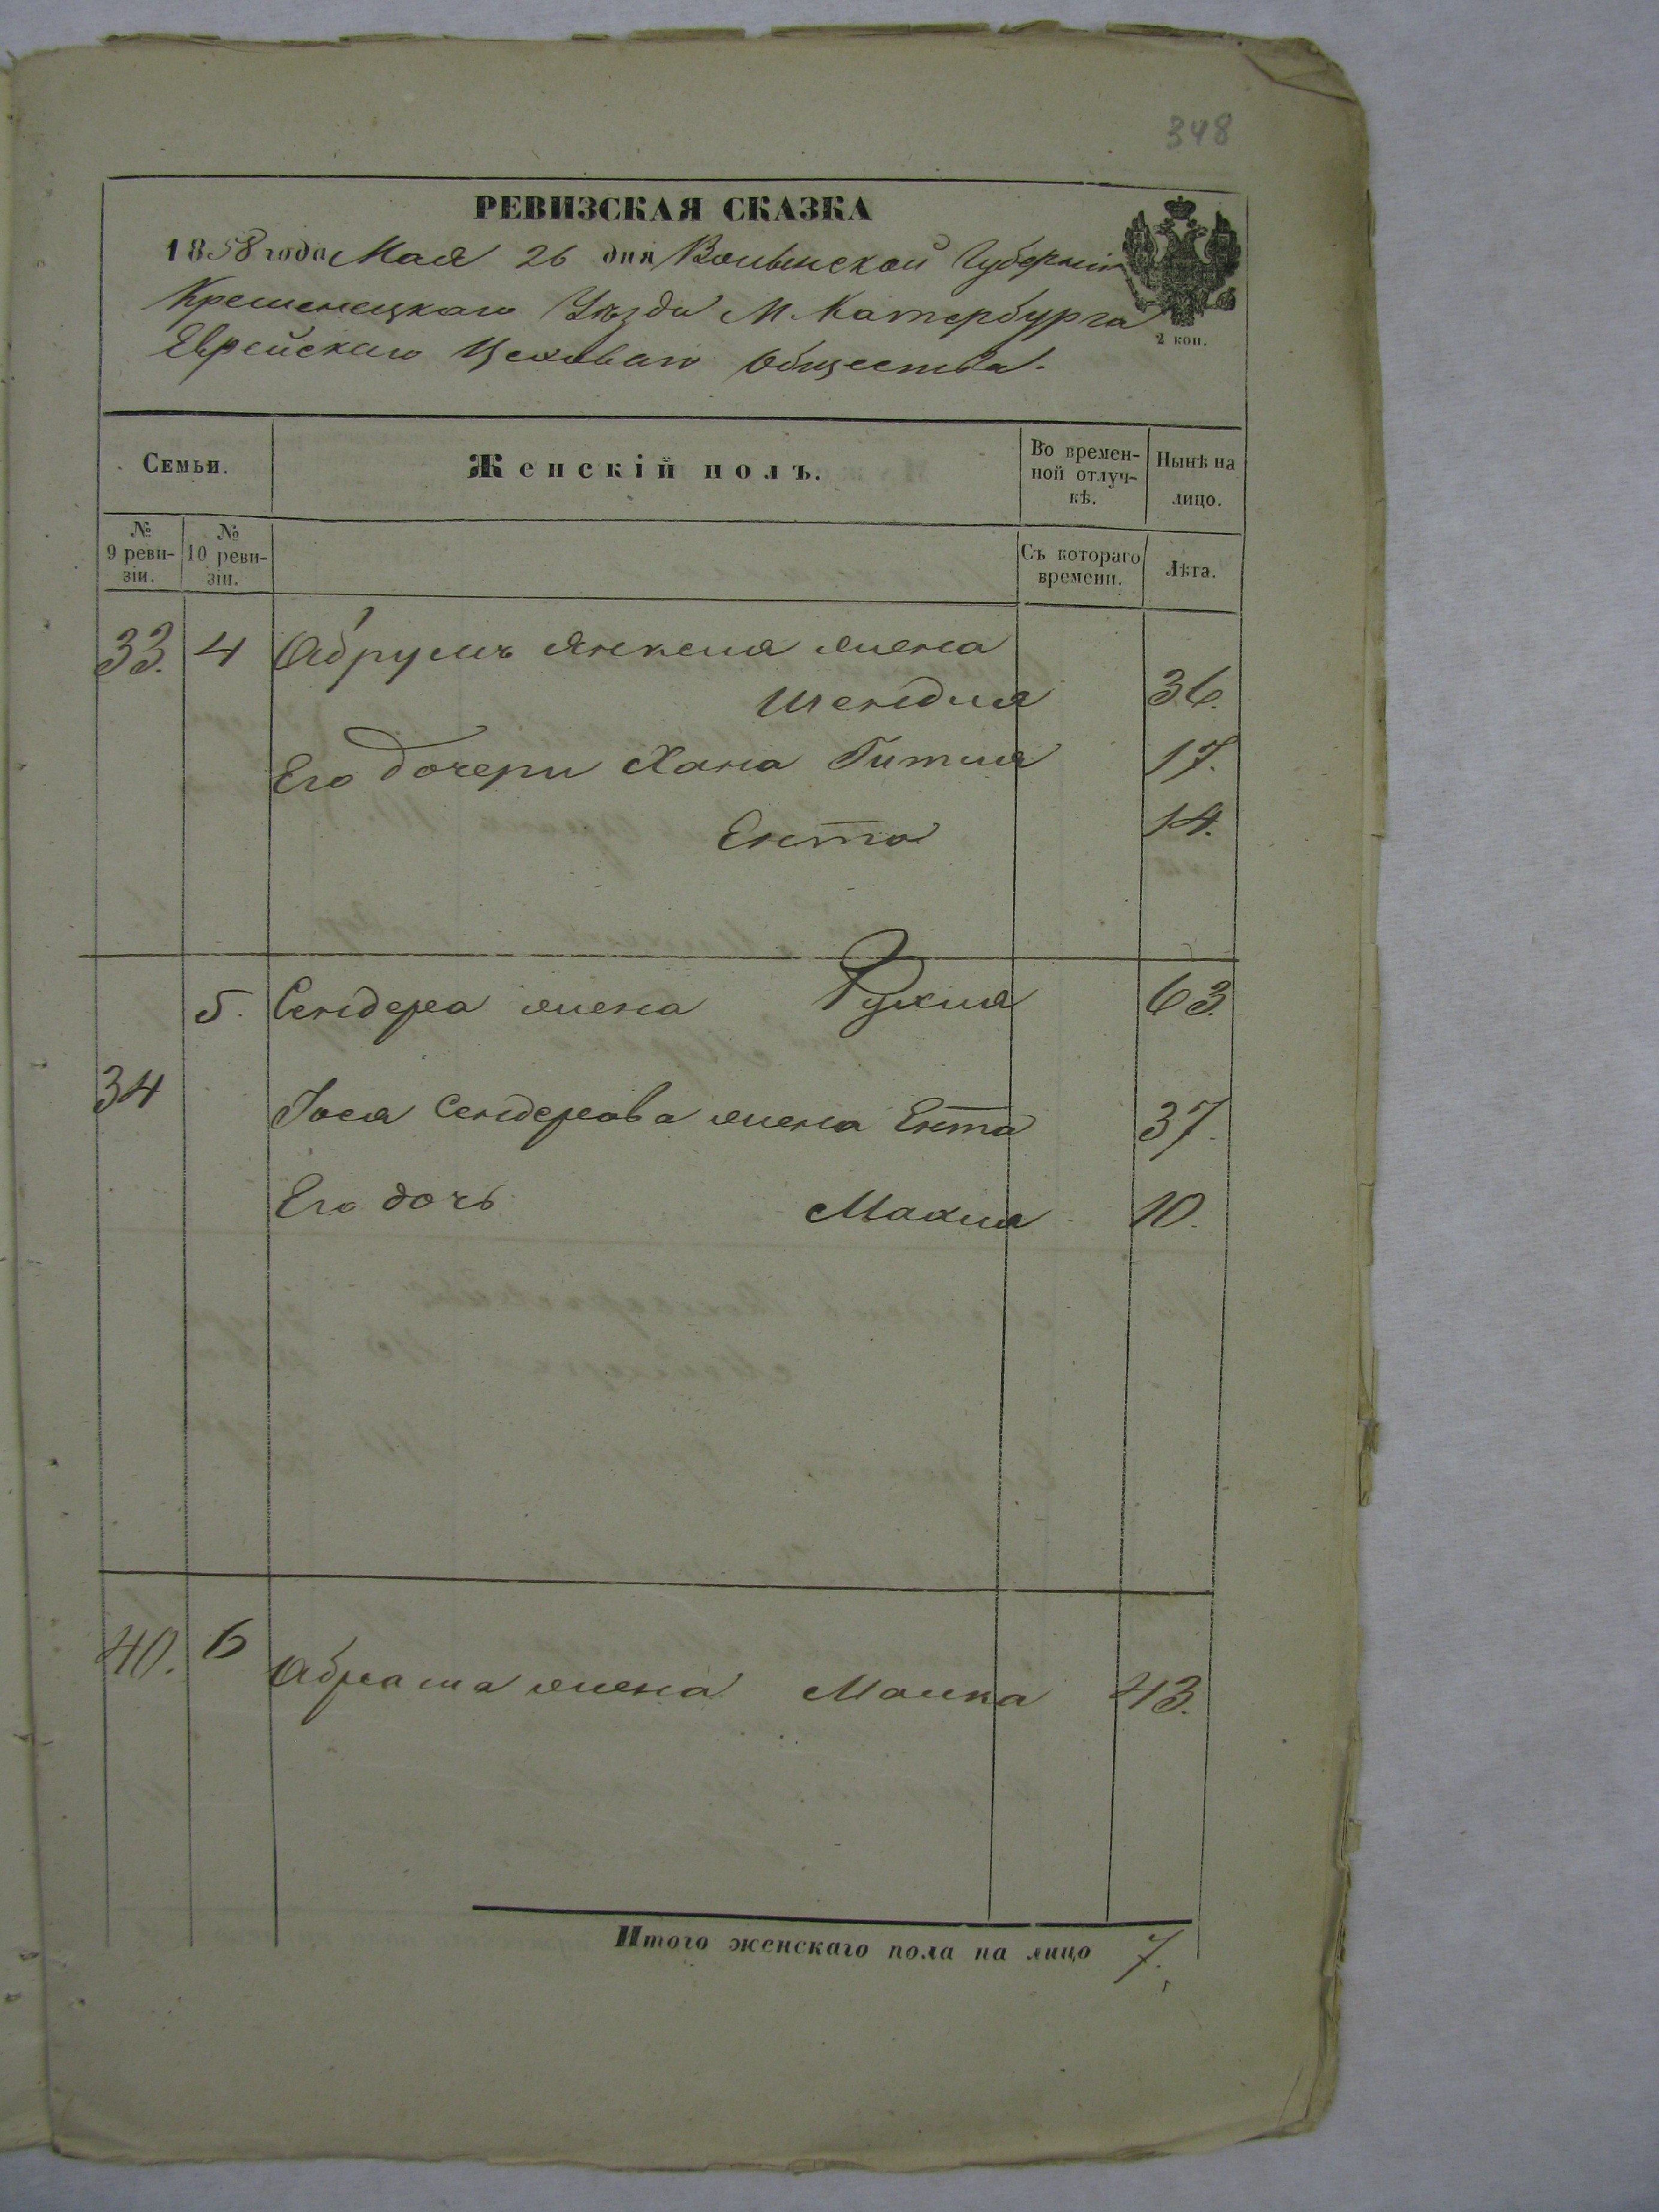 348
РЕВИЗСКАЯ СКАЗКА
1858 года Мая 26 дня Волынской Губернии
Кременецкаго Уѣзда М. Катербурга
Еврейскаго Цеховаго Общества.
2 коп.
Семьи.
Женскій полъ.
Во времен-
ной отлуч-
кѣ.
Нынѣ на
лицо.
№
9 реви-
зіи.
№
10 реви-
зіи.
Съ котораго
времени.
Лѣта.
33. 4 Абрумъ Янкеля жена
Шендля 36.
Его дочери Хана Гитля 17.
Ента 14.
5. Сендера жена Рухля 63.
34 Іося Сендерова жена Ента 37.
Его дочь Махля 10.
40. 6 Абрама жена Малка 43.
Итого женскаго пола на лицо 7.